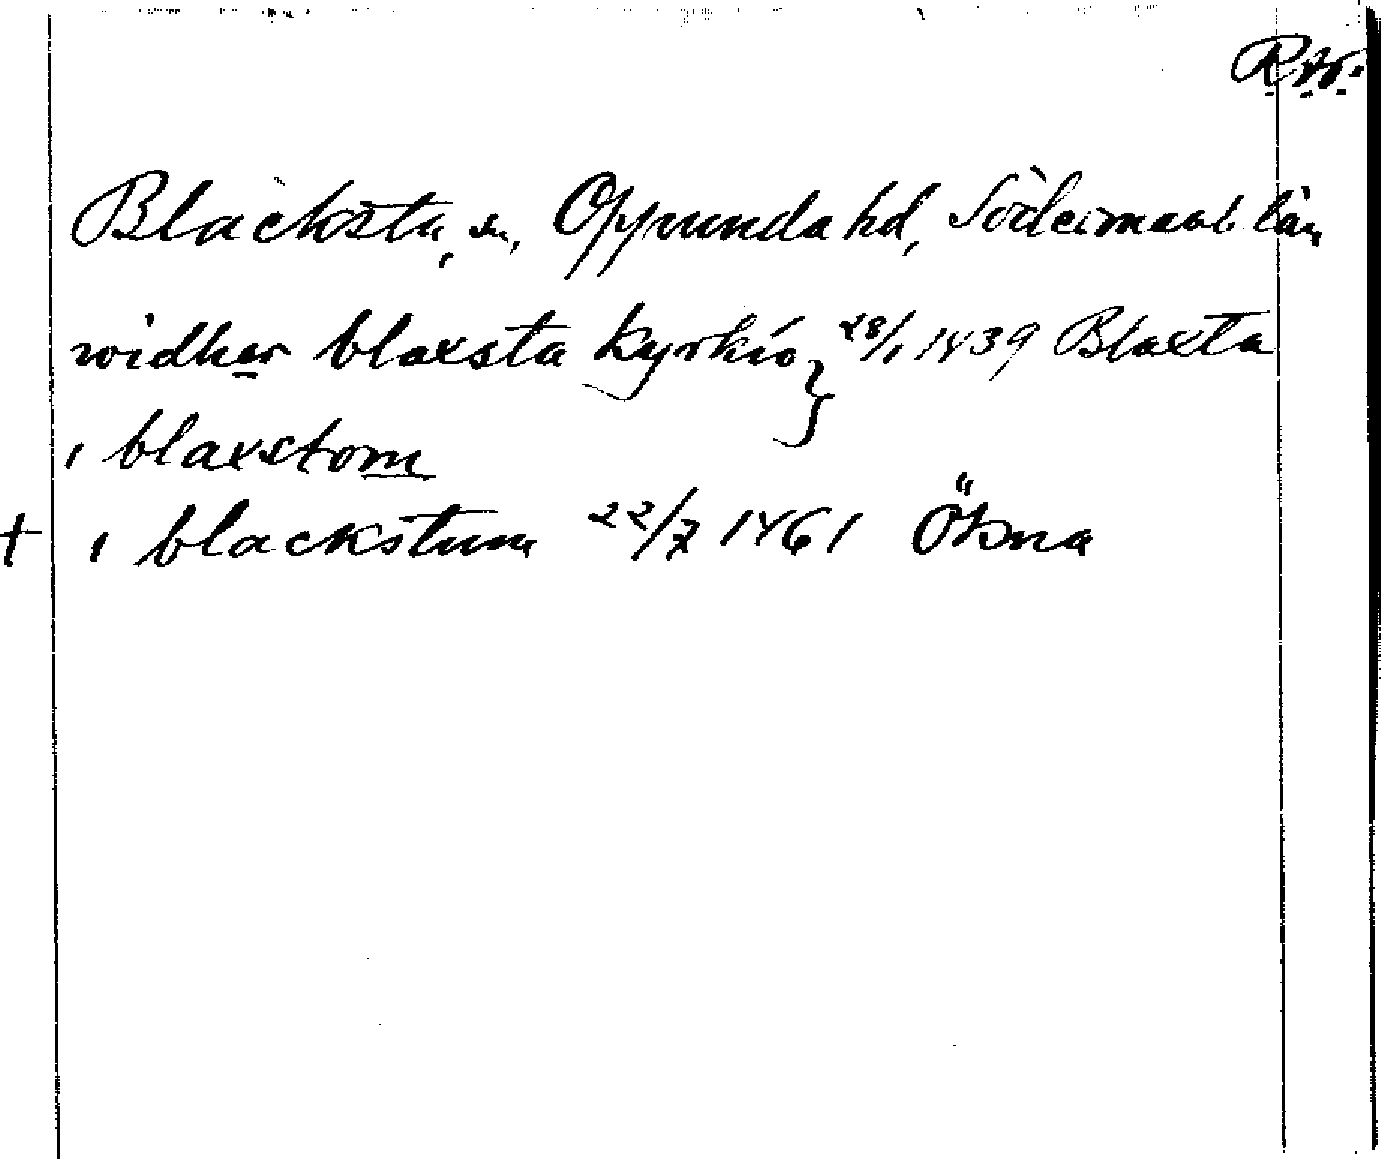 R.A.
Blacksta, sn, Oppunda hd, Södermanl. län
widher blaxsta kyrkio } 28/1 1439 Blaxta
i blaxstom
+ i blackstum 22/7 1461 Ökna